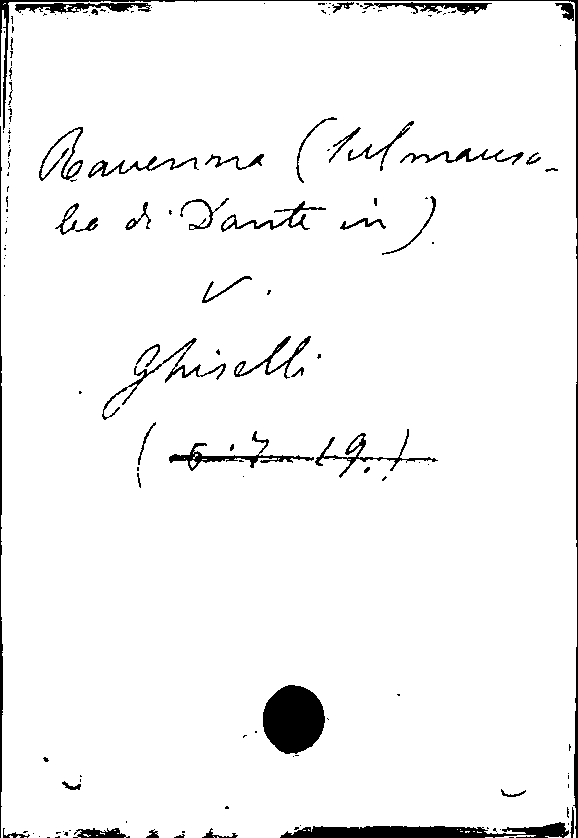 Ravenna (Sul mauso-
leo di Dante in)
V.
Ghiselli
( 6. 7. 19. )